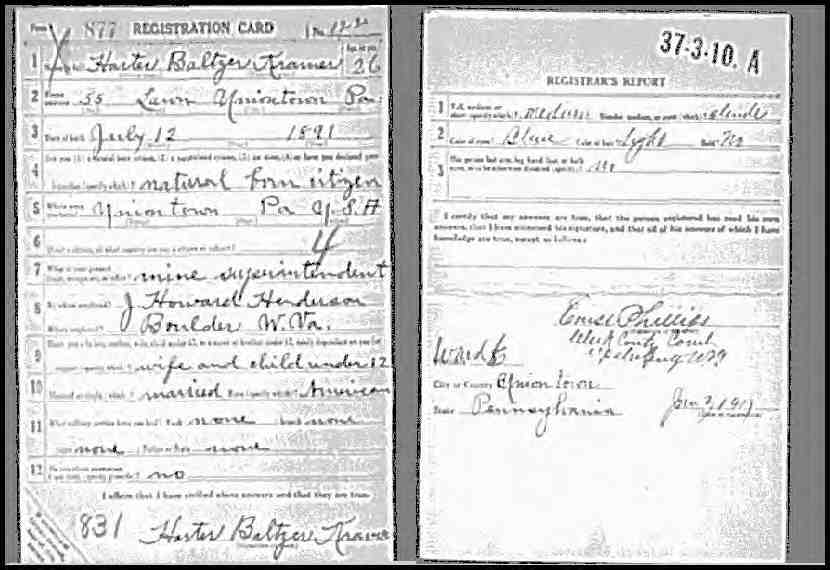 Form 1 877 REGISTRATION CARD No.
1 Harter Baltzer Kramer Age, in yrs. 26
2 Home address 55 Lawn Uniontown Pa.
3 Date of birth July 12 1891
4 Are you (1) a natural born citizen, (2) a naturalized citizen, (3) an alien, (4) or have you declared your
intention (specify which)? natural born citizen
5 Where were you born? Uniontown Pa U.S.A
6 If not a citizen, of what country are you a citizen or subject? 4
7 What is your present trade, occupation, or office? mine superintendent
8 By whom employed? J. Howard Henderson
Where employed? Boulder W. Va.
9 Have you a father, mother, wife, child under 12, or a sister or brother under 12, solely dependent on you for
support (specify which)? wife and child under 12
10 Married or single (which)? married Race (specify which)? American
11 What military service have you had? Rank none branch none
years none Nation or State none
12 Do you claim exemption from draft (specify grounds)? no
I affirm that I have verified above answers and that they are true.
831 Harter Baltzer Kramer
37-3-10. A
REGISTRAR'S REPORT
1 Tall, medium, or short (specify which)? medium Slender, medium, or stout (which)? slender
2 Color of eyes? Blue Color of hair? Light Bald? No
3 Has person lost arm, leg, hand, foot, or both eyes, or is he otherwise disabled (specify)? No
I certify that my answers are true, that the person registered has read his own
answers, that I have witnessed his signature, and that all of his answers of which I have
knowledge are true, except as follows:
Phillips
Clerk County Court
Ward
City or County Uniontown
State Pennsylvania